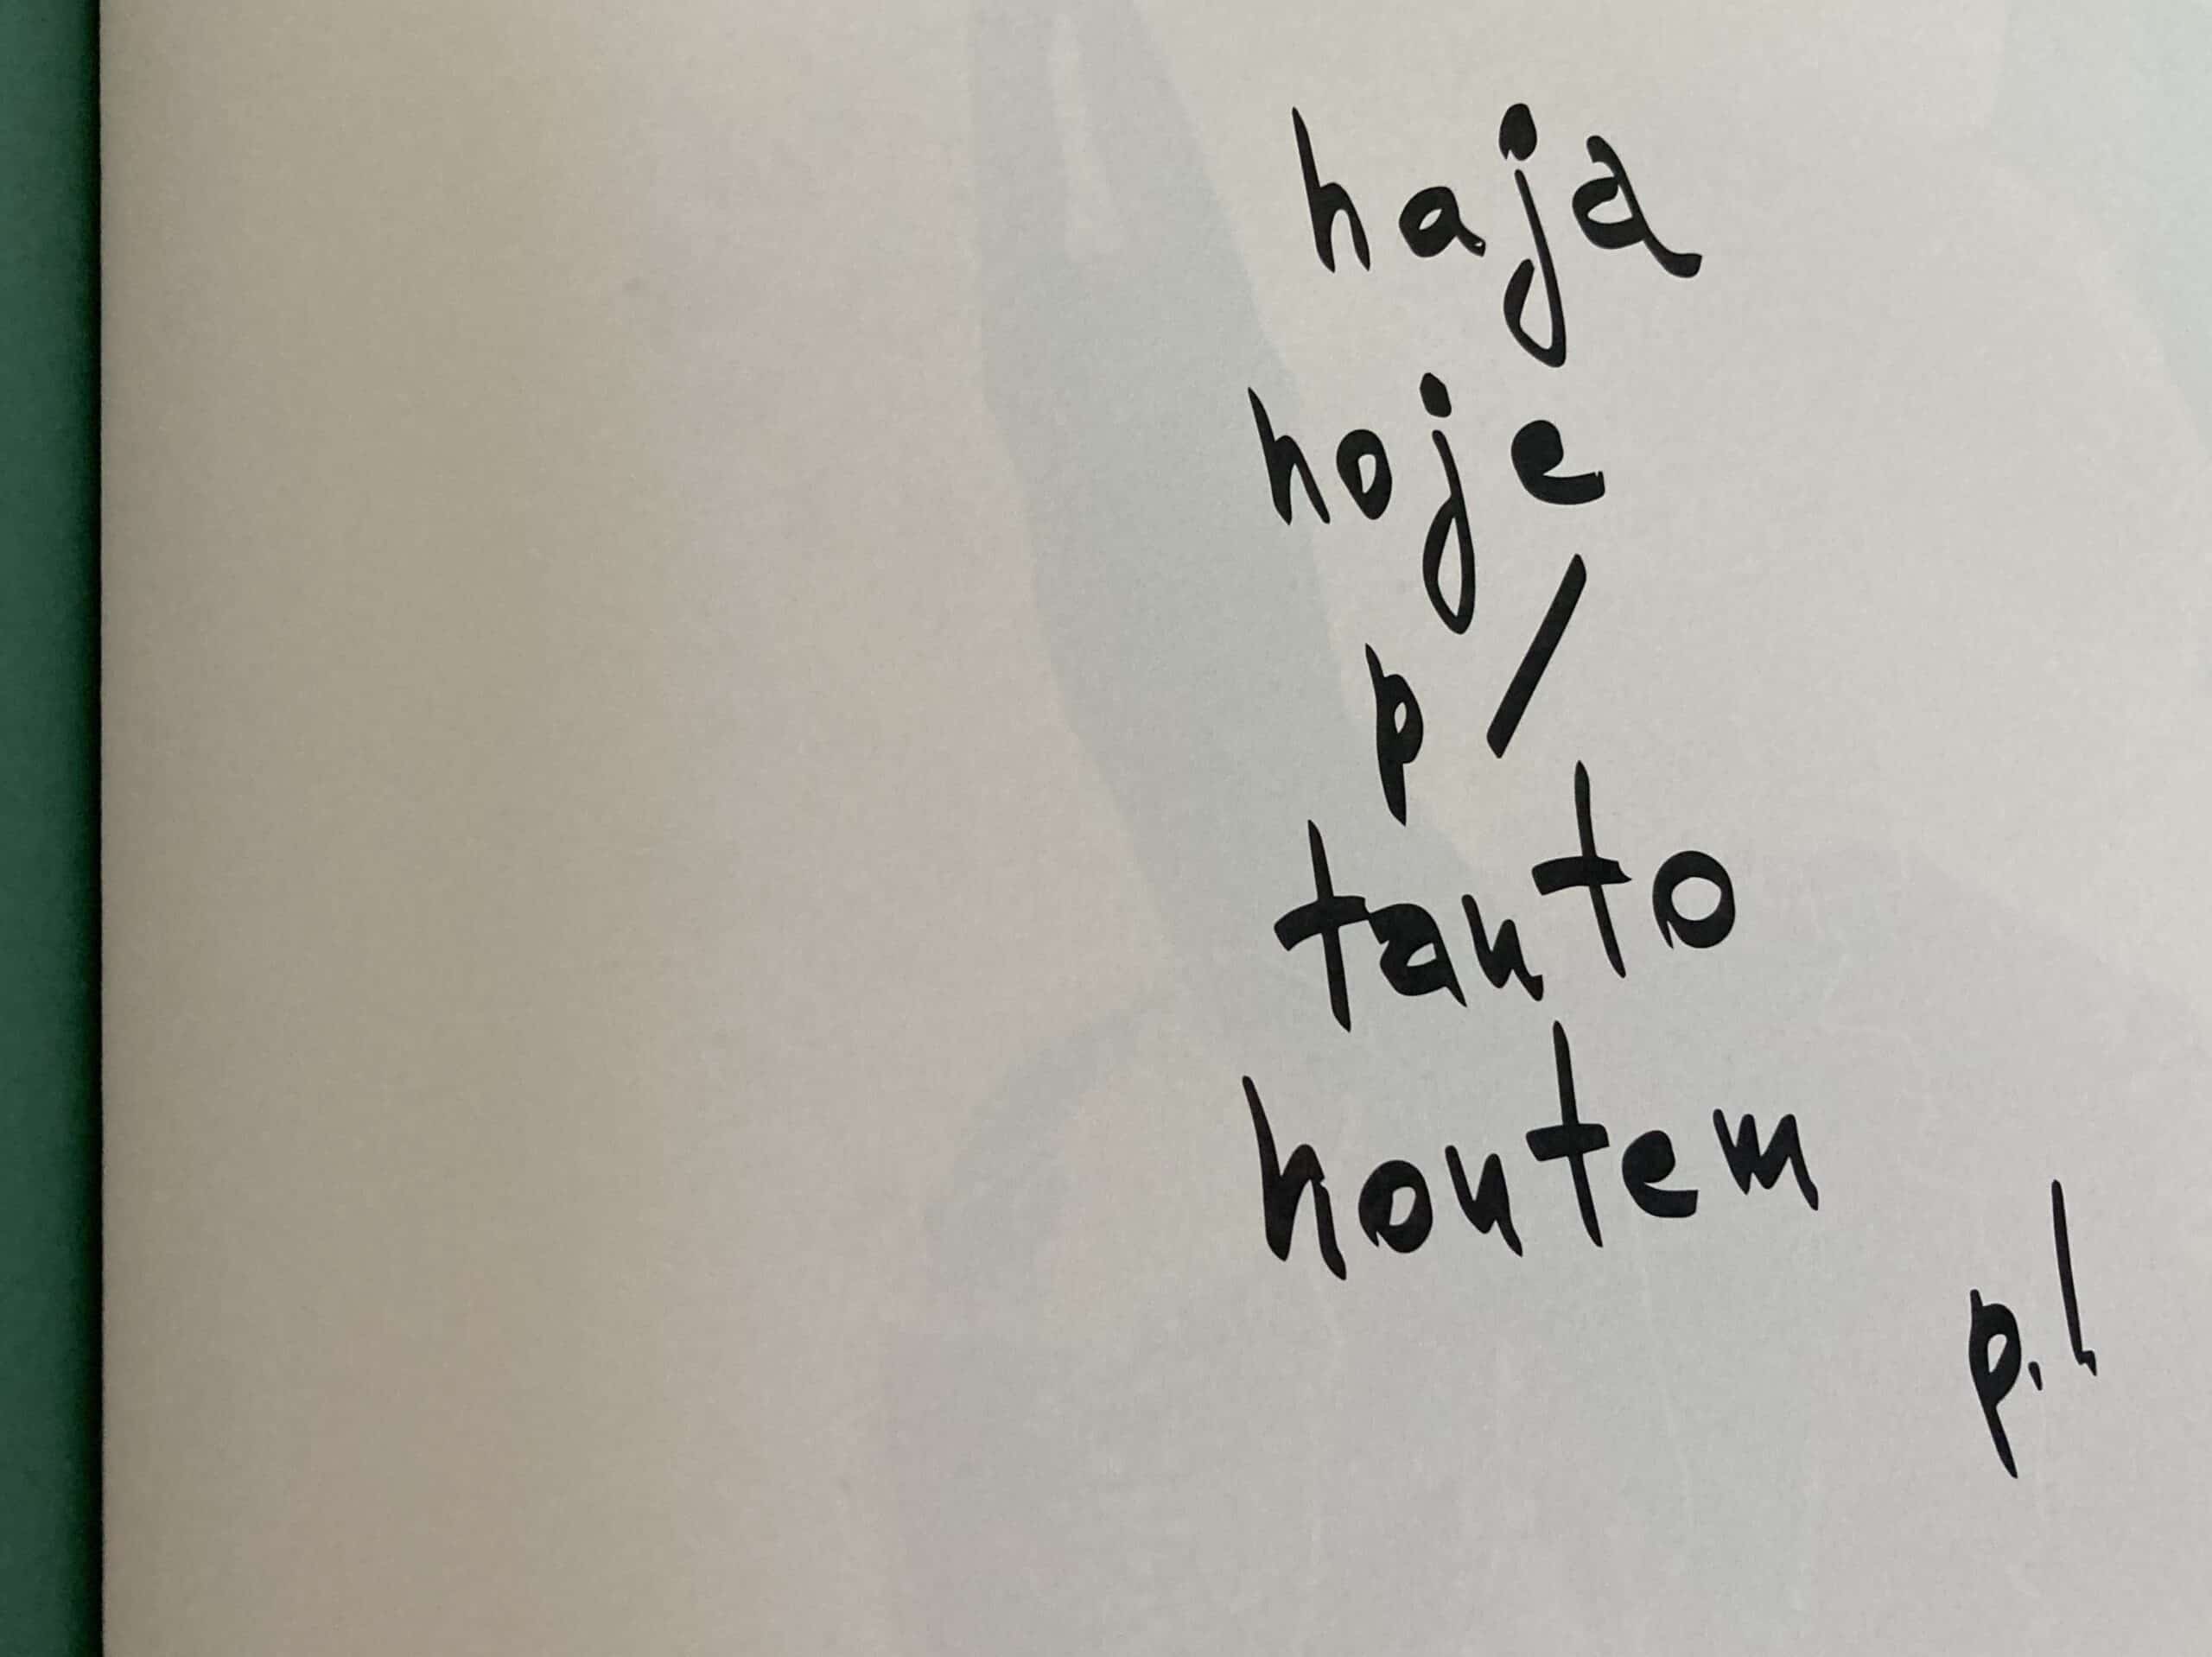 haja
hoje
p/
tanto
hontem
p.l